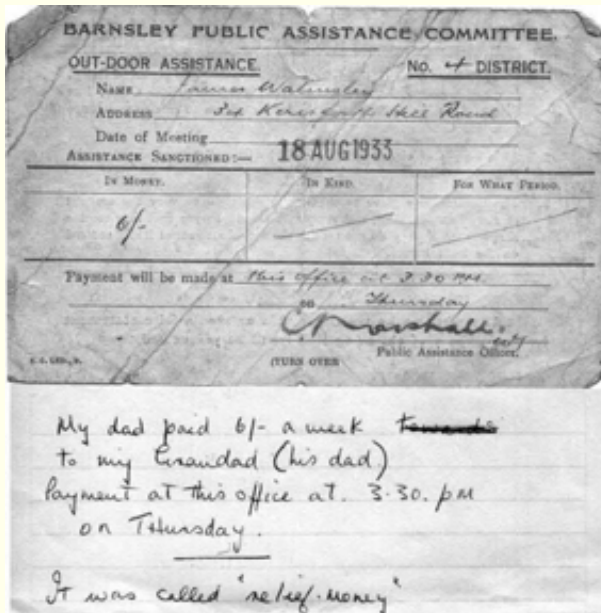 BARNSLEY PUBLIC ASSISTANCE COMMITTEE.
OUT-DOOR ASSISTANCE. No. 4 DISTRICT.
NAME James Walmsley
ADDRESS 34 Keresforth Hall Road
Date of Meeting
ASSISTANCE SANCTIONED:— 18 AUG 1933
IN MONEY. IN KIND. FOR WHAT PERIOD.
6/-
Payment will be made at this office at 3.30 P.M.
on Thursday
C Marshall.
Public Assistance Officer.
(TURN OVER
My dad paid 6/- a week towards
to my Grandad (his dad)
Payment at this office at 3.30. pm
on THursday.
It was called "relief-money"